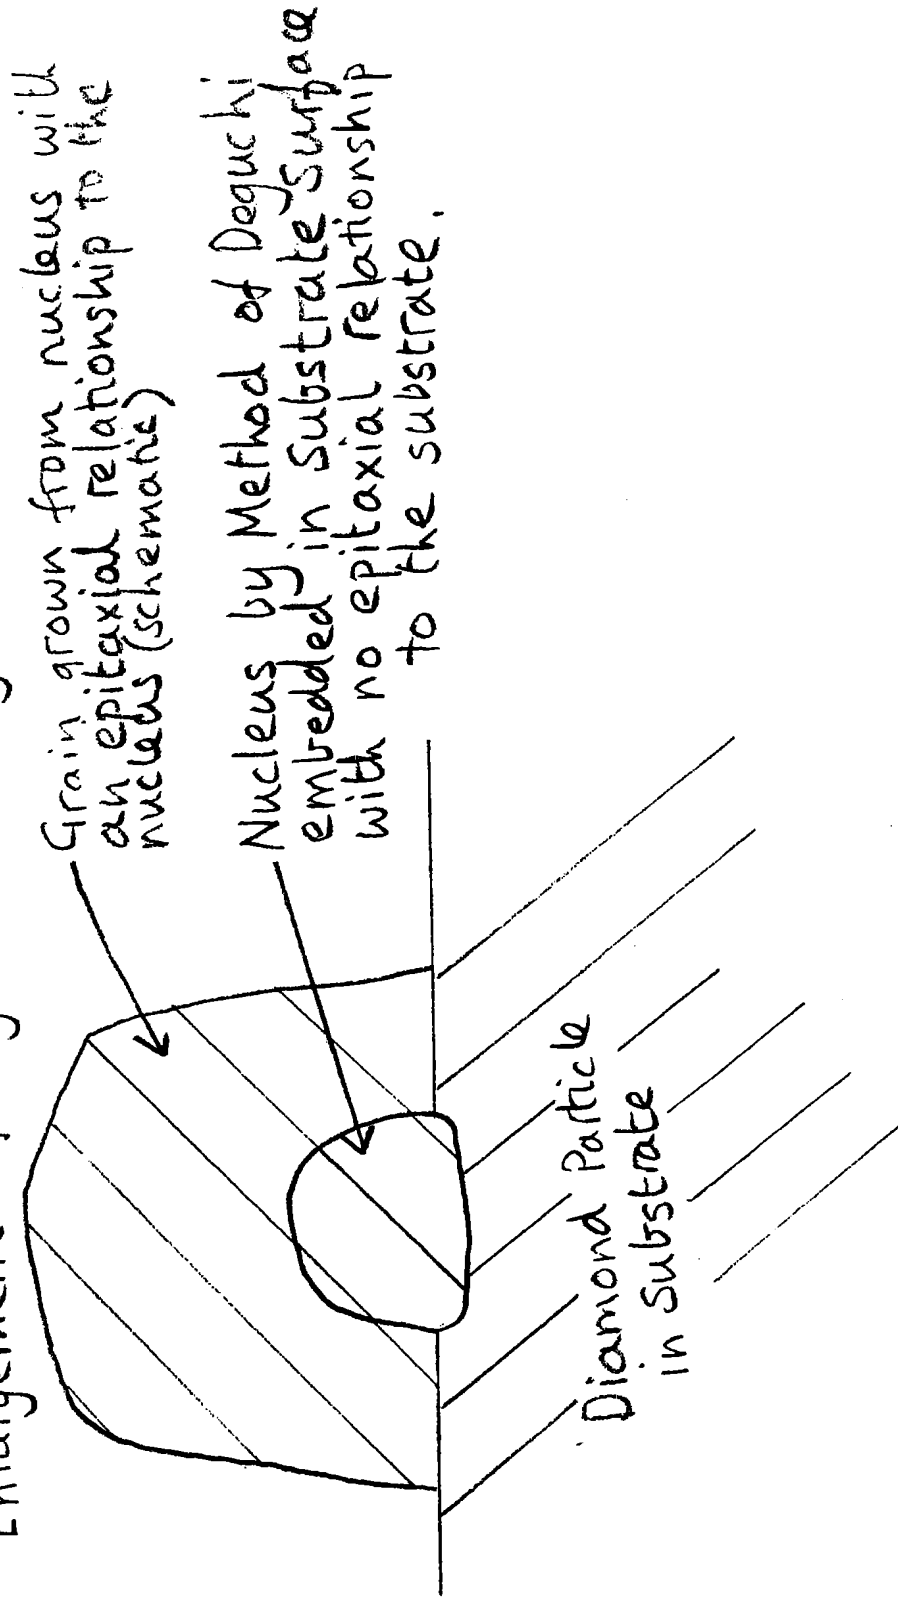 Grain grown from nucleus with
an epitaxial relationship to the
nucleus (schematic)
Nucleus by Method of Deguchi
embedded in substrate surface
with no epitaxial relationship
to the substrate.
Diamond Particle
in Substrate